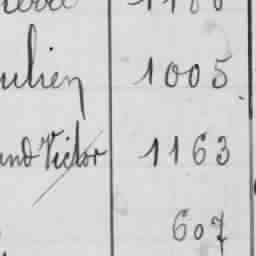 ulien 1005
and Victor 1163
607